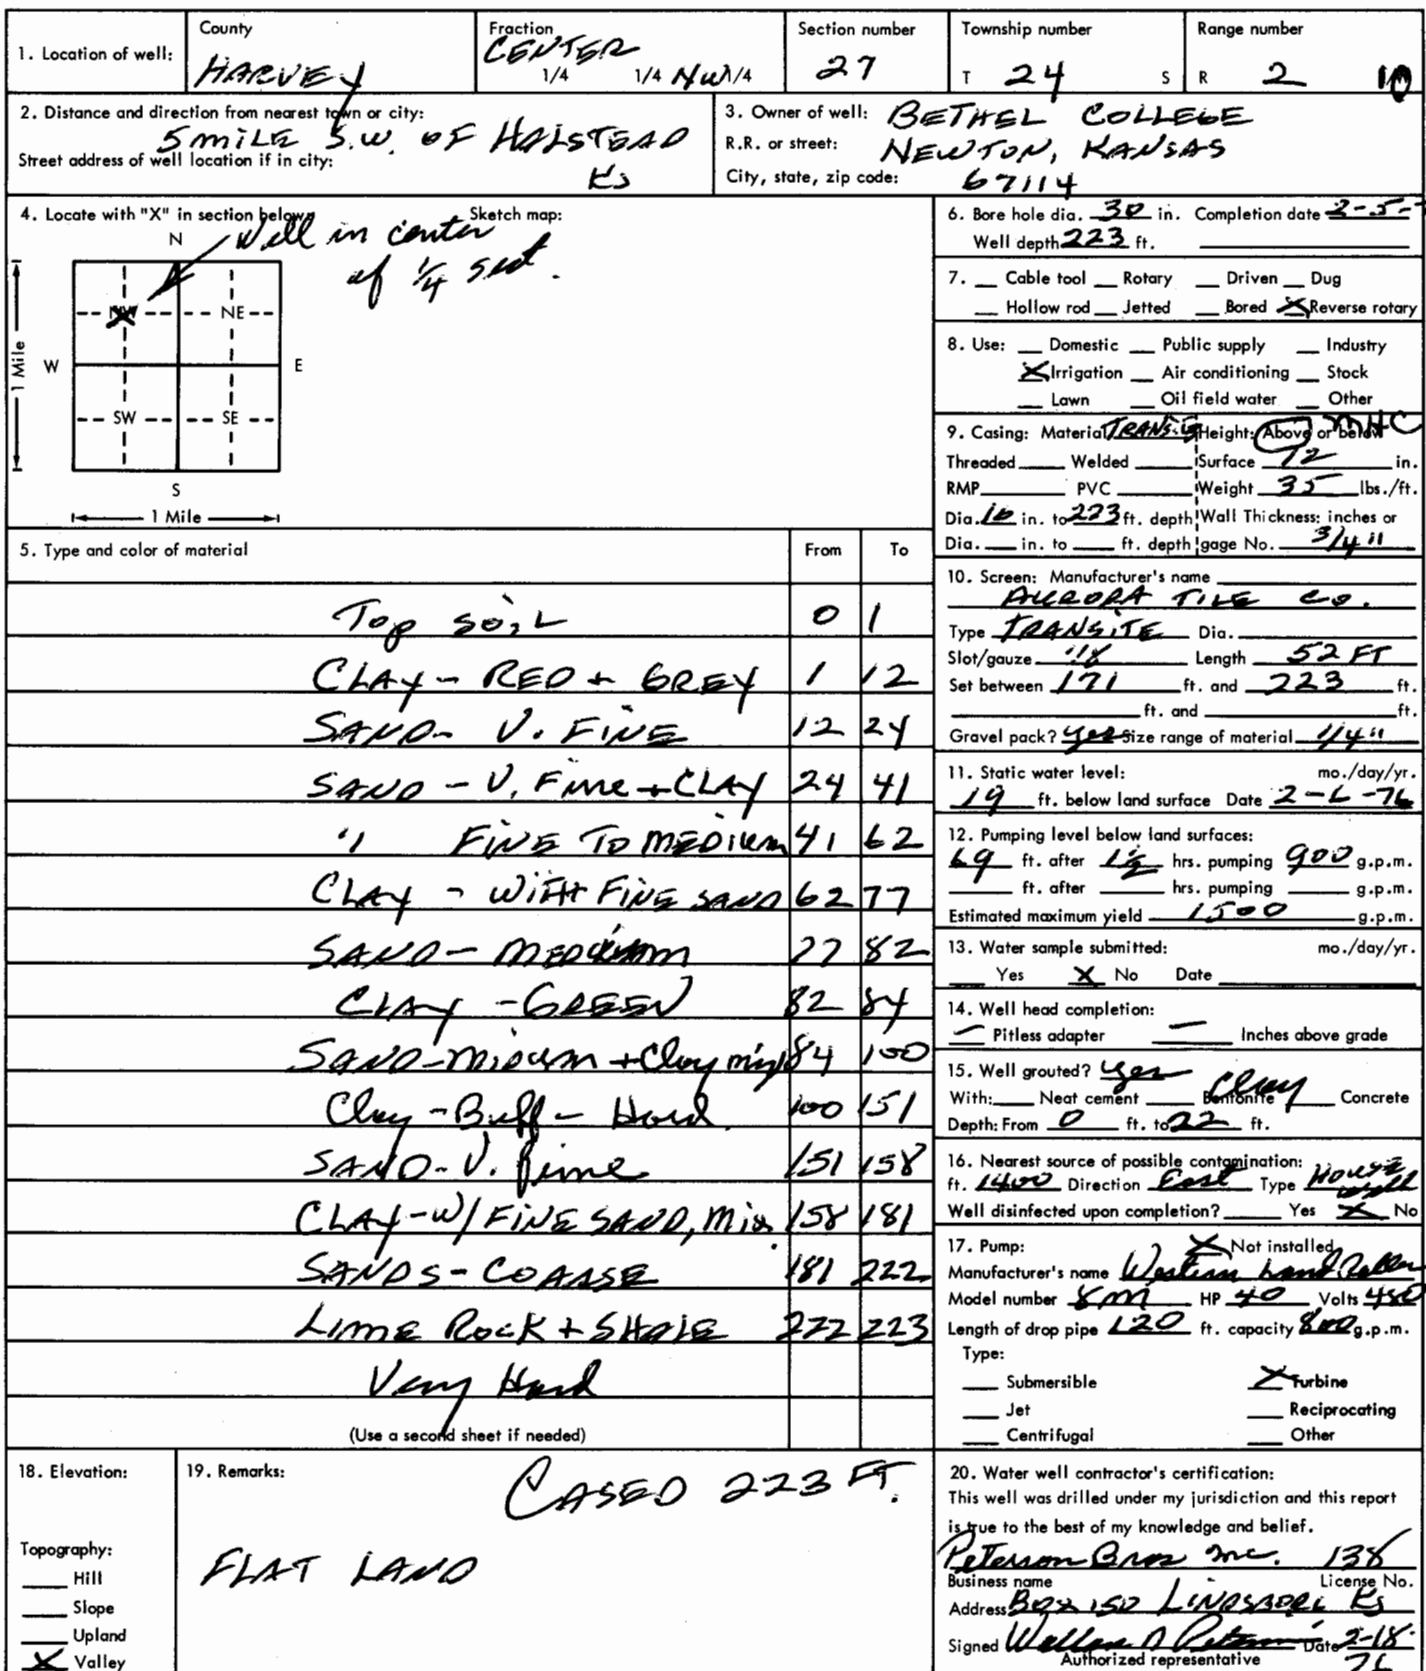 1. Location of well:
County
HARVEY
Fraction
CENTER
1/4 1/4 NW 1/4
Section number
27
Township number
T 24 S
Range number
R 2 W
2. Distance and direction from nearest town or city:
5 MILE S.W. OF HALSTEAD
Street address of well location if in city:
Ks
3. Owner of well: BETHEL COLLEGE
R.R. or street: NEWTON, KANSAS
City, state, zip code: 67114
4. Locate with "X" in section below:
Sketch map:
Well in center
of 1/4 sect.
N
NW NE
W E
SW SE
S
1 Mile
1 Mile
5. Type and color of material From To
Top soil 0 1
CLAY - RED + GREY 1 12
SAND - V. FINE 12 24
SAND - V. Fine + CLAY 24 41
" FINE TO MEDIUM 41 62
CLAY - WITH FINE SAND 62 77
SAND - MEDIUM 77 82
CLAY - GREEN 82 84
SAND - MIDIUM + Clay mix 84 100
Clay - Buff - Hard 100 151
SAND - V. Fine 151 158
CLAY - W/ FINE SAND, Mix. 158 181
SANDS - COARSE 181 222
LIME ROCK + SHALE 222 223
Very Hard
(Use a second sheet if needed)
6. Bore hole dia. 30 in. Completion date 2-5-
Well depth 223 ft.
7. Cable tool Rotary Driven Dug
Hollow rod Jetted Bored X Reverse rotary
8. Use: Domestic Public supply Industry
X Irrigation Air conditioning Stock
Lawn Oil field water Other
MHC
9. Casing: Material Height: Above or below
Threaded Welded Surface 12 in.
RMP PVC Weight 35 lbs./ft.
Dia. 16 in. to 223 ft. depth Wall Thickness: inches or
Dia. in. to ft. depth gage No. 3/4"
10. Screen: Manufacturer's name
AURORA TILE CO.
Type TRANSITE Dia.
Slot/gauze 1/8 Length 52 FT
Set between 171 ft. and 223 ft.
ft. and ft.
Gravel pack? yes Size range of material 1/4"
11. Static water level: mo./day/yr.
19 ft. below land surface Date 2-6-76
12. Pumping level below land surfaces:
69 ft. after 1½ hrs. pumping 900 g.p.m.
ft. after hrs. pumping g.p.m.
Estimated maximum yield 1500 g.p.m.
13. Water sample submitted: mo./day/yr.
Yes X No Date
14. Well head completion:
— Pitless adapter — Inches above grade
15. Well grouted? yes
With: Neat cement Bentonite Clay Concrete
Depth: From 0 ft. to 22 ft.
16. Nearest source of possible contamination:
ft. 1400 Direction East Type House well
Well disinfected upon completion? Yes X No
17. Pump: X Not installed
Manufacturer's name Western Land Roller
Model number 8M HP 40 Volts 480
Length of drop pipe 120 ft. capacity 800 g.p.m.
Type:
Submersible X Turbine
Jet Reciprocating
Centrifugal Other
18. Elevation:
Topography:
Hill
Slope
Upland
X Valley
19. Remarks:
CASED 223 FT.
FLAT LAND
20. Water well contractor's certification:
This well was drilled under my jurisdiction and this report
is true to the best of my knowledge and belief.
Peterson Bros Inc. 138
Business name License No.
Address Box 150 LINDSBORG Ks
Signed Date 2-18-
76
Authorized representative